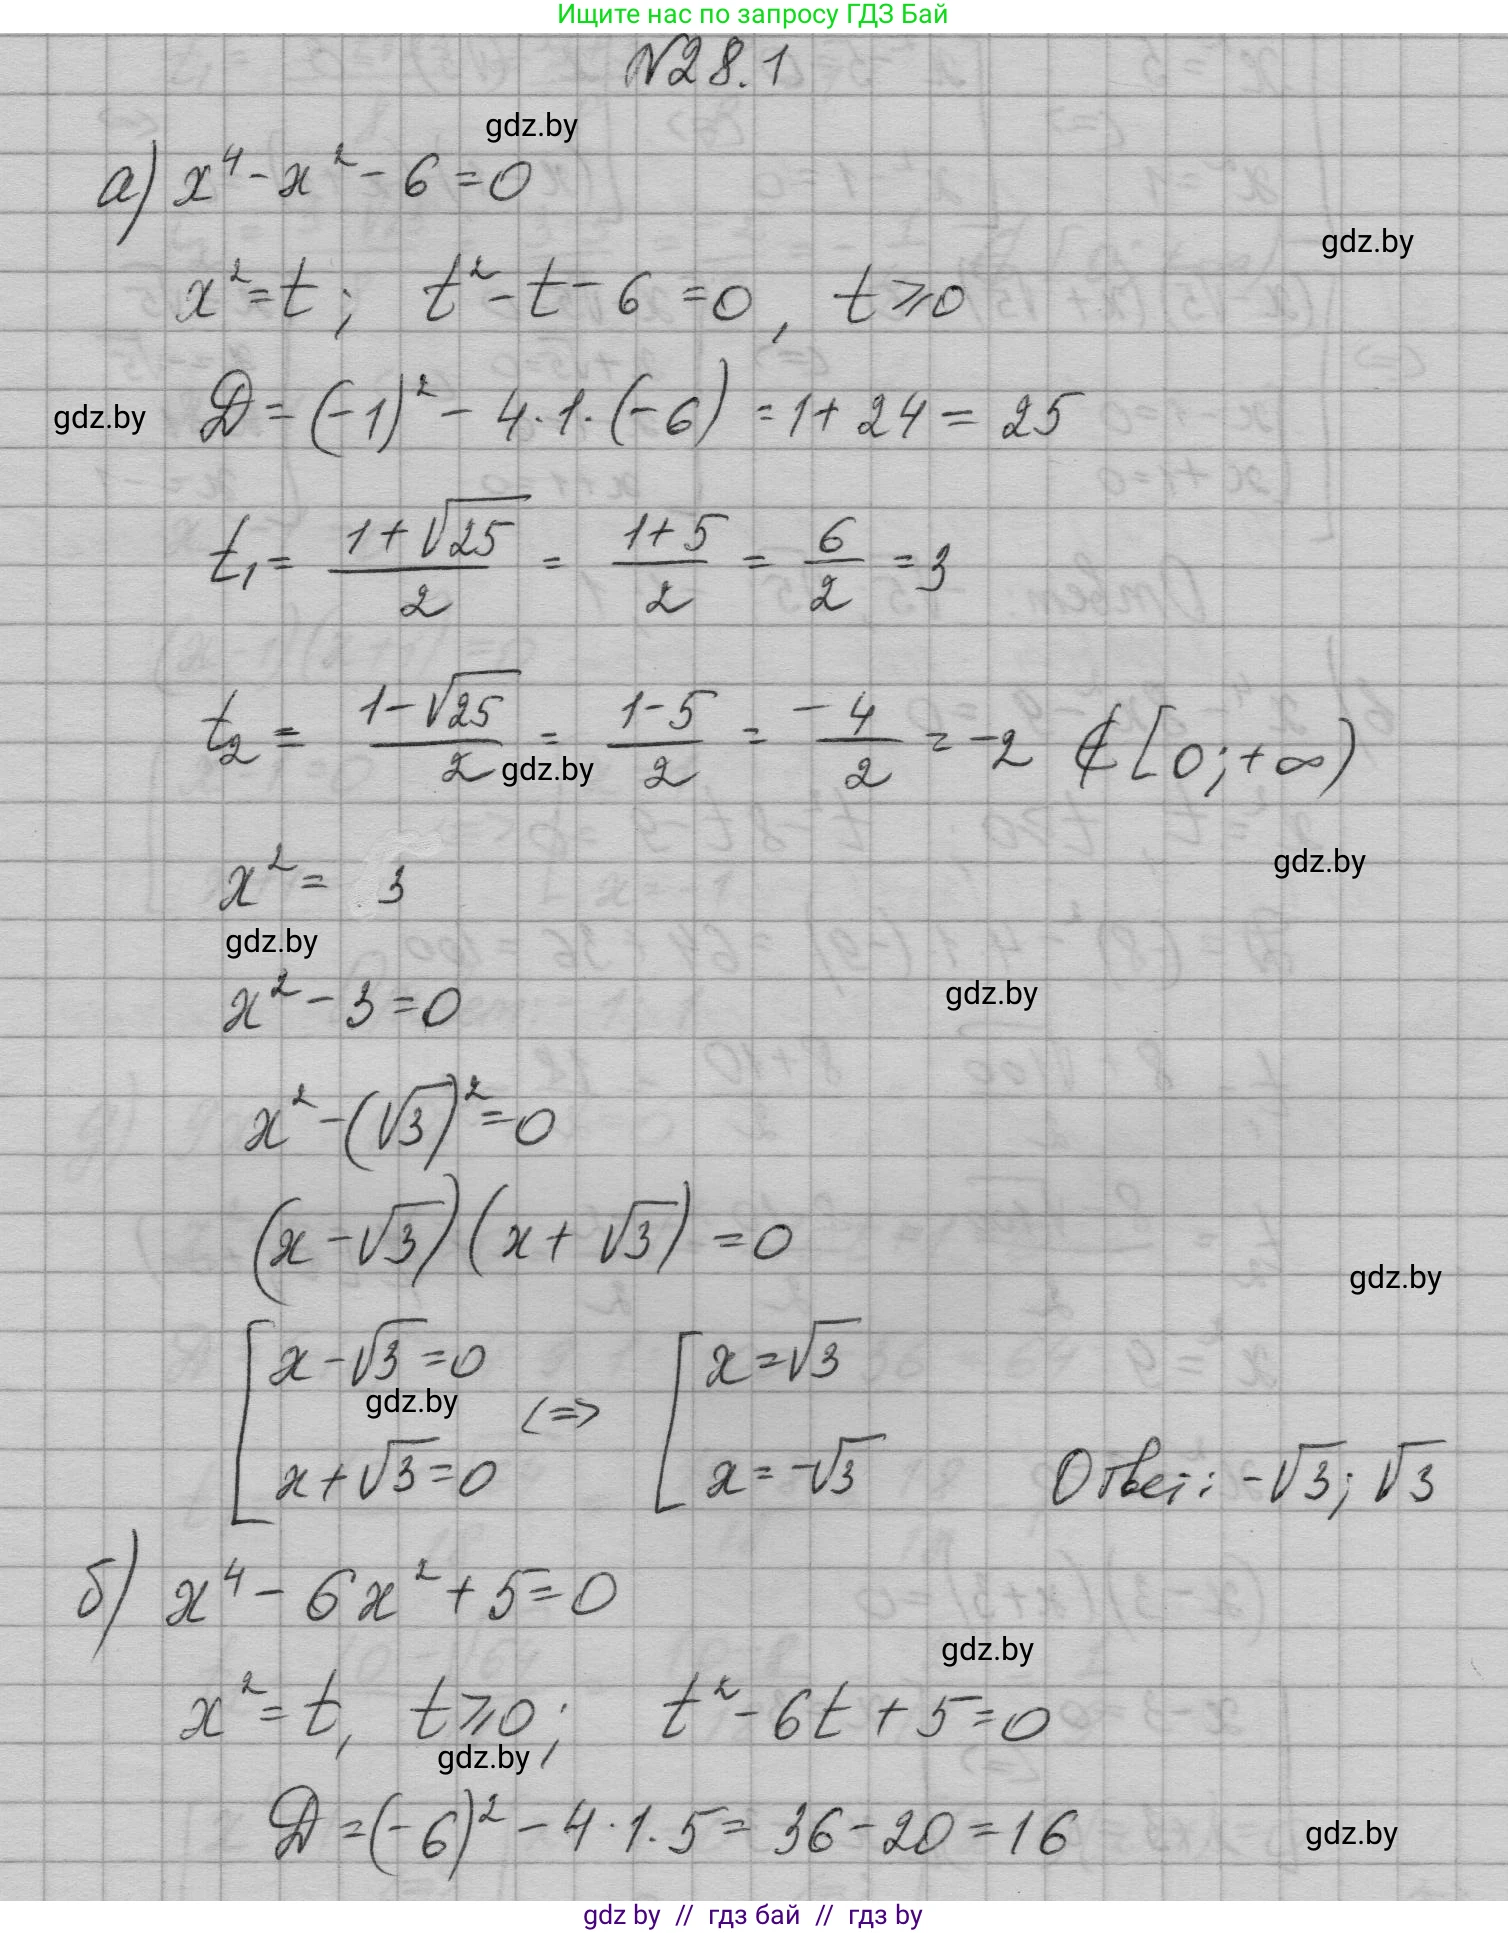 Ищите нас по запросу ГДЗ Бай
№28.1
gdz.by
а) x⁴ - x² - 6 = 0
gdz.by
x² = t; t² - t - 6 = 0, t ⩾ 0
gdz.by
D = (-1)² - 4·1·(-6) = 1 + 24 = 25
t₁ = (1+√25)/2 = (1+5)/2 = 6/2 = 3
t₂ = (1-√25)/2 = (1-5)/2 = -4/2 = -2 ∉ [0; +∞)
gdz.by
gdz.by
x² = 3
gdz.by
gdz.by
x² - 3 = 0
x² - (√3)² = 0
(x - √3)(x + √3) = 0
gdz.by
[ x - √3 = 0 [ x = √3
gdz.by
⟺
x + √3 = 0 x = -√3 Ответ: -√3; √3
б) x⁴ - 6x² + 5 = 0
gdz.by
x² = t, t ⩾ 0; t² - 6t + 5 = 0
gdz.by
D = (-6)² - 4·1·5 = 36 - 20 = 16
gdz.by
gdz by // гдз бай // гдз by